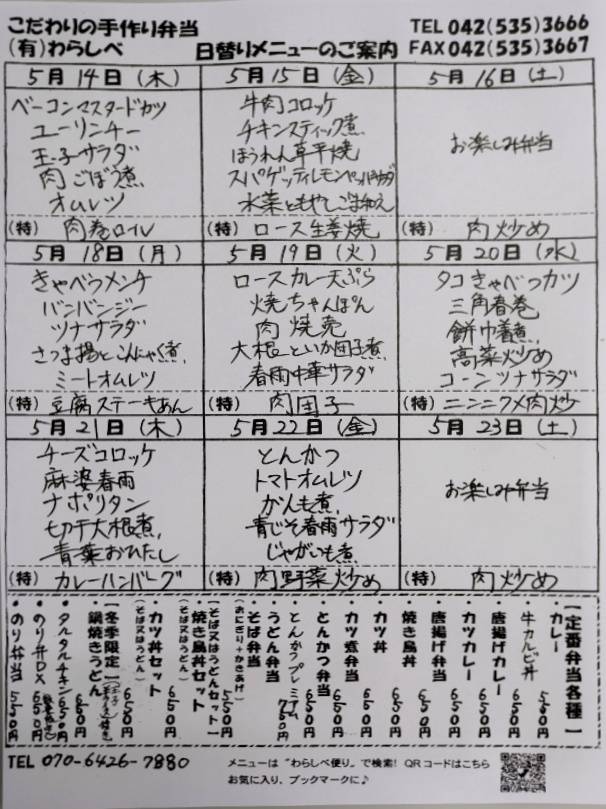 こだわりの手作り弁当
(有)わらしべ
日替りメニューのご案内
TEL 042(535)3666
FAX 042(535)3667
5月14日(木)
ベーコンマスタードカツ
ユーリンチー
玉子サラダ
肉ごぼう煮
オムレツ
(特) 肉巻ロール
5月15日(金)
牛肉コロッケ
チキンスティック煮
ほうれん草平焼
スパゲッティレモンペッパーサラダ
水菜ともやしごま和え
(特) ロース生姜焼
5月16日(土)
お楽しみ弁当
(特) 肉炒め
5月18日(月)
きゃべつメンチ
バンバンジー
ツナサラダ
さつま揚とこんにゃく煮
ミートオムレツ
(特) 豆腐ステーキあん
5月19日(火)
ロースカレー天ぷら
焼ちゃんぽん
肉焼売
大根といか団子煮
春雨中華サラダ
(特) 肉団子
5月20日(水)
タコきゃべつカツ
三角春巻
餅巾着煮
高菜炒め
コーンツナサラダ
(特) ニンニクメ肉炒
5月21日(木)
チーズコロッケ
麻婆春雨
ナポリタン
切干大根煮
青菜おひたし
(特) カレーハンバーグ
5月22日(金)
とんかつ
トマトオムレツ
がんも煮
青じそ春雨サラダ
じゃがいも煮
(特) 肉野菜炒め
5月23日(土)
お楽しみ弁当
(特) 肉炒め
【定番弁当各種】
・カレー 550円
・牛カルビ丼 650円
・唐揚げカレー 650円
・カツカレー 650円
・唐揚げ弁当 650円
・焼き鳥丼 650円
・カツ丼 650円
・カツ煮弁当 650円
・とんかつ弁当 650円
・とんかつプレミアム 750円
・うどん弁当
・そば弁当 550円
(おにぎり+かき揚げ)
【そば又はうどんセット】
・焼き鳥丼セット 650円
(そば又はうどん)
・カツ丼セット 650円
(そば又はうどん)
【冬季限定】
・鍋焼きうどん 650円
・タルタルチキン 650円
・のり弁DX 650円
・のり弁当 550円
TEL 070-6426-7880
メニューは "わらしべ便り" で検索! QRコードはこちら
お気に入り、ブックマークに♪